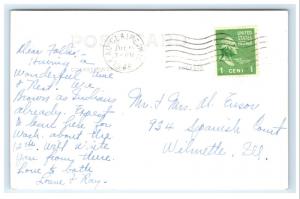 POST CARD
EAU CLAIRE
UNITED STATES
POSTAGE
1 CENT 1
Dear Folks,
Having a
wonderful time
& Rest. We're
Brown as Indians
already. Expect
to leave here for
Wash. about the
12th. Will write
you from there.
Love to both
& Ray.
Mr. & Mrs. Al.
934 Spanish Court
Wilmette, Ill.